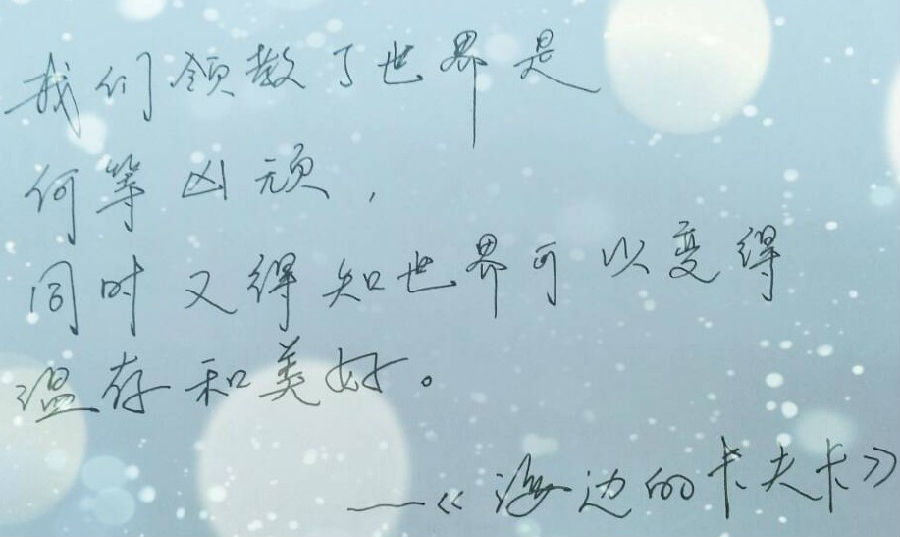 我们领教了世界是
何等凶顽，
同时又得知世界可以变得
温存和美好。
——《海边的卡夫卡》